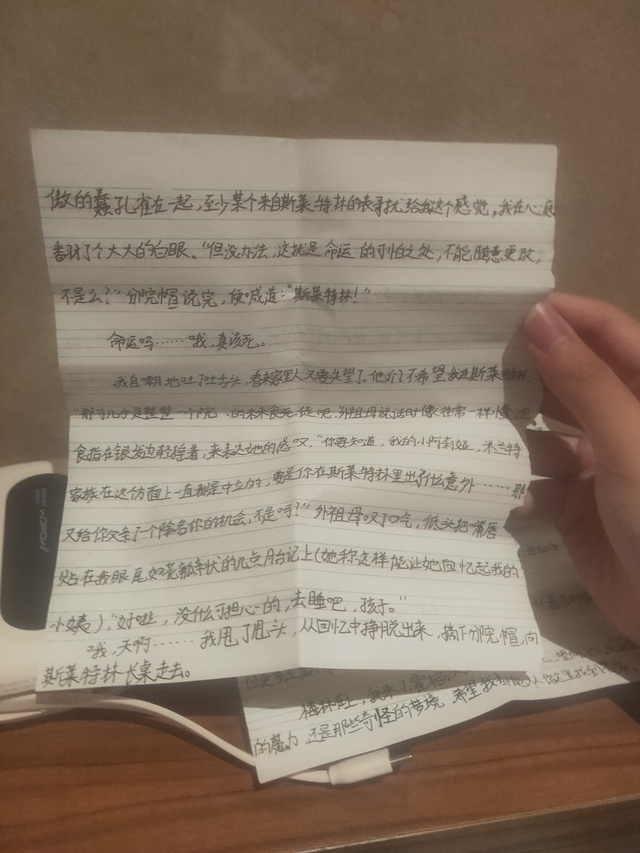 傲的蠢孔雀在一起，至少某个来自斯莱特林的表哥给我这个感觉，我在心底
翻了个大大的白眼。“但没办法，这就是命运的可怕之处，不能随意更改，
不是么？”分院帽说完，便喊道：“斯莱特林！”
命运吗……哦，真该死。
我自嘲地吐了吐舌头，看来家里人又要失望了。他们不希望我进斯莱特林
“那可几乎是整整一个院的未来食死徒呢，外祖母说话时像往常一样慢
食指在银发边轻绕着，来表达她的感叹。“你要知道，我的小阿莉娅，米兰特
家族在这方面上一直都是中立的，要是你在斯莱特林里出了什么意外……那
又给你父亲了一个除名你的机会，不是吗？”外祖母叹了口气，低头把嘴唇
贴在我眼尾如花瓢状的几点胎记上（她称这样能让她回忆起我的
小姨），“好啦，没什么可担心的，去睡吧，孩子。”
“哦，天啊……我甩了甩头，从回忆中挣脱出来，摘下分院帽，向
斯莱特林长桌走去。
梅林在上，我
的魔力，还是那些奇怪的梦境，希望我